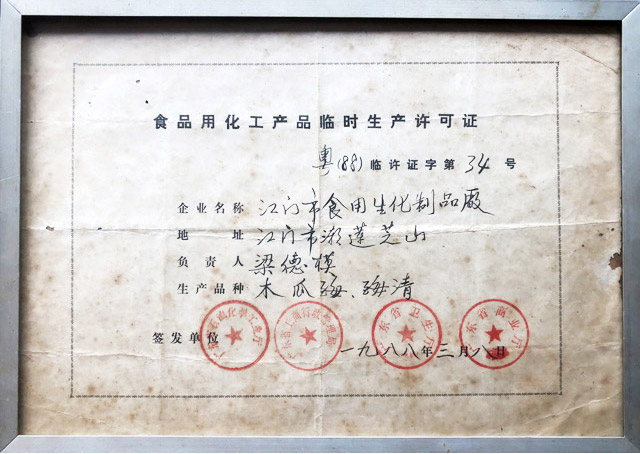 食品用化工产品临时生产许可证
粤(88)临许证字第34号
企业名称 江门市食用生化制品厰
地址 江门市潮莲芝山
负责人 梁德模
生产品种 木瓜酶、酶清
签发单位
广东省石油化学工业厅
广东省工商行政管理局
广东省卫生厅
广东省商业厅
一九八八年三月八日